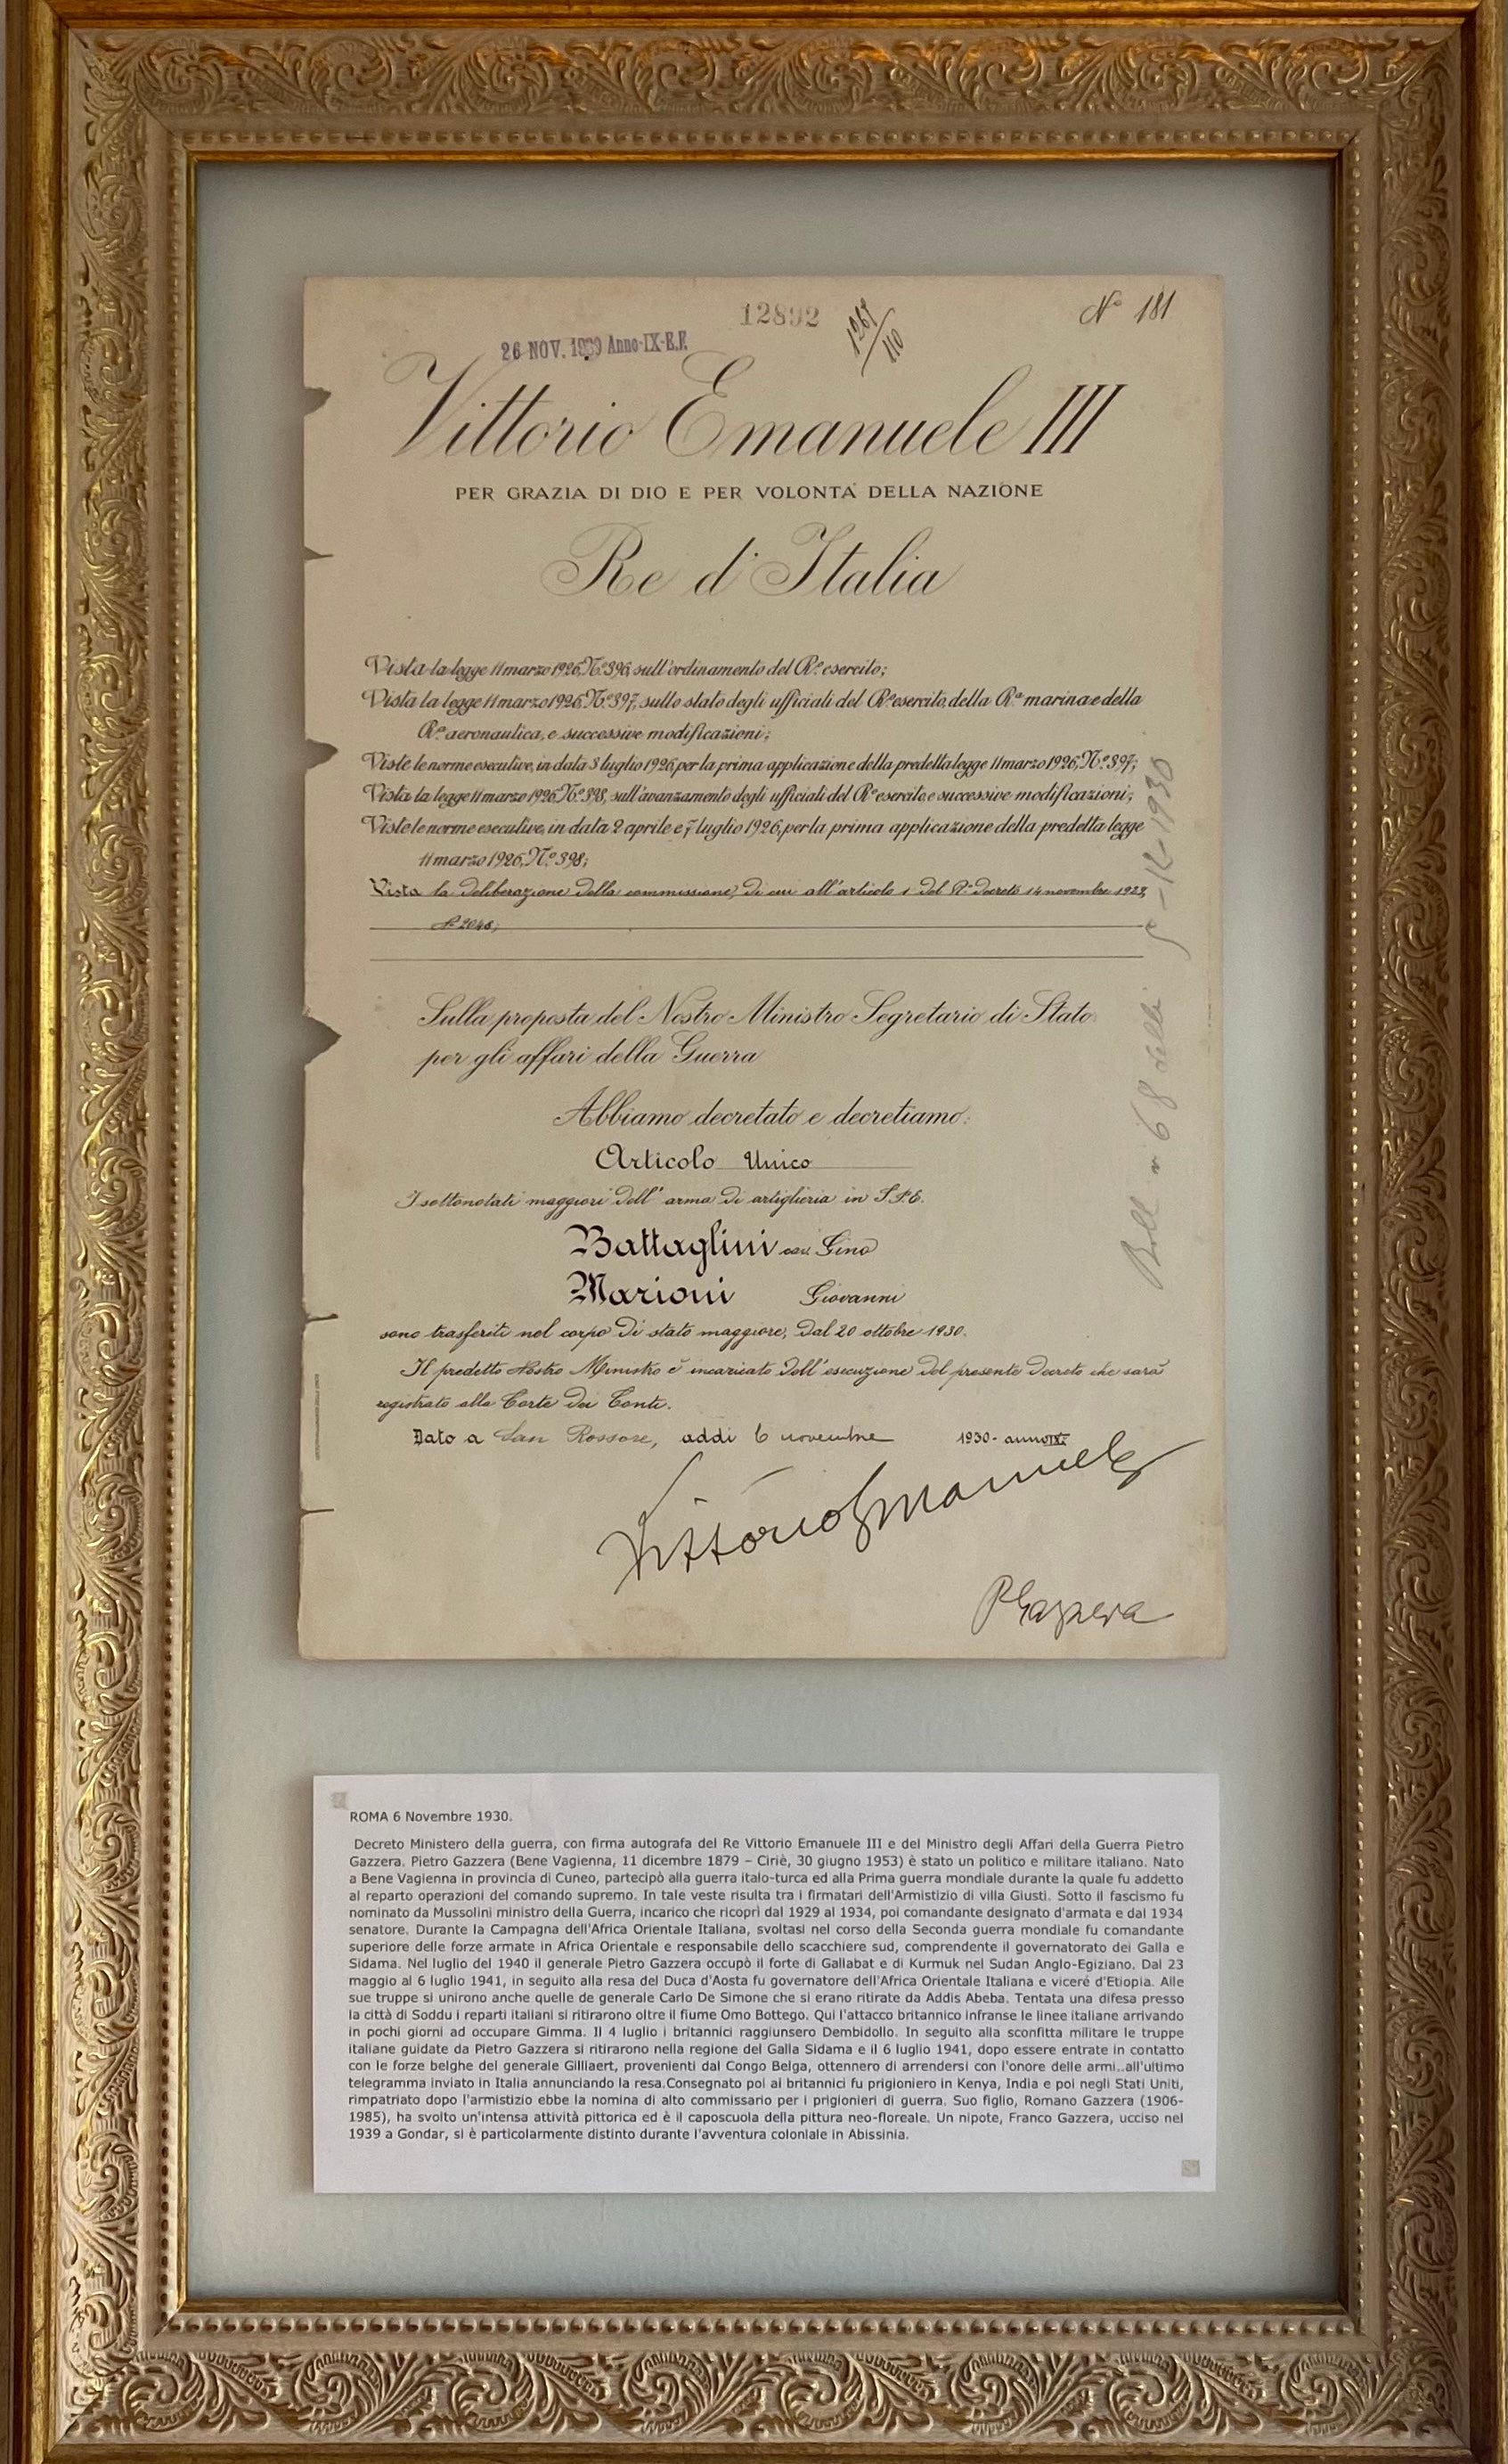 12892
Nº 181
1267/110
26 NOV. 1930 Anno·IX·E.F.
Vittorio Emanuele III
PER GRAZIA DI DIO E PER VOLONTÀ DELLA NAZIONE
Re d'Italia
Vista la legge 11 marzo 1926, Nº 396, sull'ordinamento del Rº esercito;
Vista la legge 11 marzo 1926, Nº 397, sullo stato degli ufficiali del Rº esercito, della Rª marina e della
Rª aeronautica, e successive modificazioni;
Viste le norme esecutive, in data 3 luglio 1926, per la prima applicazione della predetta legge 11 marzo 1926, Nº 397;
Vista la legge 11 marzo 1926, Nº 398, sull'avanzamento degli ufficiali del Rº esercito, e successive modificazioni;
Viste le norme esecutive, in data 2 aprile e 7 luglio 1926, per la prima applicazione della predetta legge
11 marzo 1926, Nº 398;
Vista la deliberazione della commissione, di cui all'articolo 1 del Rº decreto 14 novembre 1929,
Nº 2048;
Sulla proposta del Nostro Ministro Segretario di Stato
per gli affari della Guerra
Abbiamo decretato e decretiamo:
Articolo Unico
I sottonotati maggiori dell'arma di artiglieria in S.P.E.
Battaglini cav. Gino
Marioni Giovanni
sono trasferiti nel corpo di stato maggiore, dal 20 ottobre 1930.
Il predetto Nostro Ministro è incaricato dell'esecuzione del presente decreto che sarà
registrato alla Corte dei Conti.
Dato a San Rossore, addì 6 novembre 1930 - anno IX.
Vittorio Emanuele
PGazzera
Boll n 68 delli 5-12-1930
ROMA 6 Novembre 1930.
Decreto Ministero della guerra, con firma autografa del Re Vittorio Emanuele III e del Ministro degli Affari della Guerra Pietro
Gazzera. Pietro Gazzera (Bene Vagienna, 11 dicembre 1879 – Ciriè, 30 giugno 1953) è stato un politico e militare italiano. Nato
a Bene Vagienna in provincia di Cuneo, partecipò alla guerra italo-turca ed alla Prima guerra mondiale durante la quale fu addetto
al reparto operazioni del comando supremo. In tale veste risulta tra i firmatari dell'Armistizio di villa Giusti. Sotto il fascismo fu
nominato da Mussolini ministro della Guerra, incarico che ricoprì dal 1929 al 1934, poi comandante designato d'armata e dal 1934
senatore. Durante la Campagna dell'Africa Orientale Italiana, svoltasi nel corso della Seconda guerra mondiale fu comandante
superiore delle forze armate in Africa Orientale e responsabile dello scacchiere sud, comprendente il governatorato dei Galla e
Sidama. Nel luglio del 1940 il generale Pietro Gazzera occupò il forte di Gallabat e di Kurmuk nel Sudan Anglo-Egiziano. Dal 23
maggio al 6 luglio 1941, in seguito alla resa del Duca d'Aosta fu governatore dell'Africa Orientale Italiana e viceré d'Etiopia. Alle
sue truppe si unirono anche quelle de generale Carlo De Simone che si erano ritirate da Addis Abeba. Tentata una difesa presso
la città di Soddu i reparti italiani si ritirarono oltre il fiume Omo Bottego. Qui l'attacco britannico infranse le linee italiane arrivando
in pochi giorni ad occupare Gimma. Il 4 luglio i britannici raggiunsero Dembidollo. In seguito alla sconfitta militare le truppe
italiane guidate da Pietro Gazzera si ritirarono nella regione del Galla Sidama e il 6 luglio 1941, dopo essere entrate in contatto
con le forze belghe del generale Gilliaert, provenienti dal Congo Belga, ottennero di arrendersi con l'onore delle armi..all'ultimo
telegramma inviato in Italia annunciando la resa.Consegnato poi ai britannici fu prigioniero in Kenya, India e poi negli Stati Uniti,
rimpatriato dopo l'armistizio ebbe la nomina di alto commissario per i prigionieri di guerra. Suo figlio, Romano Gazzera (1906-
1985), ha svolto un'intensa attività pittorica ed è il caposcuola della pittura neo-floreale. Un nipote, Franco Gazzera, ucciso nel
1939 a Gondar, si è particolarmente distinto durante l'avventura coloniale in Abissinia.